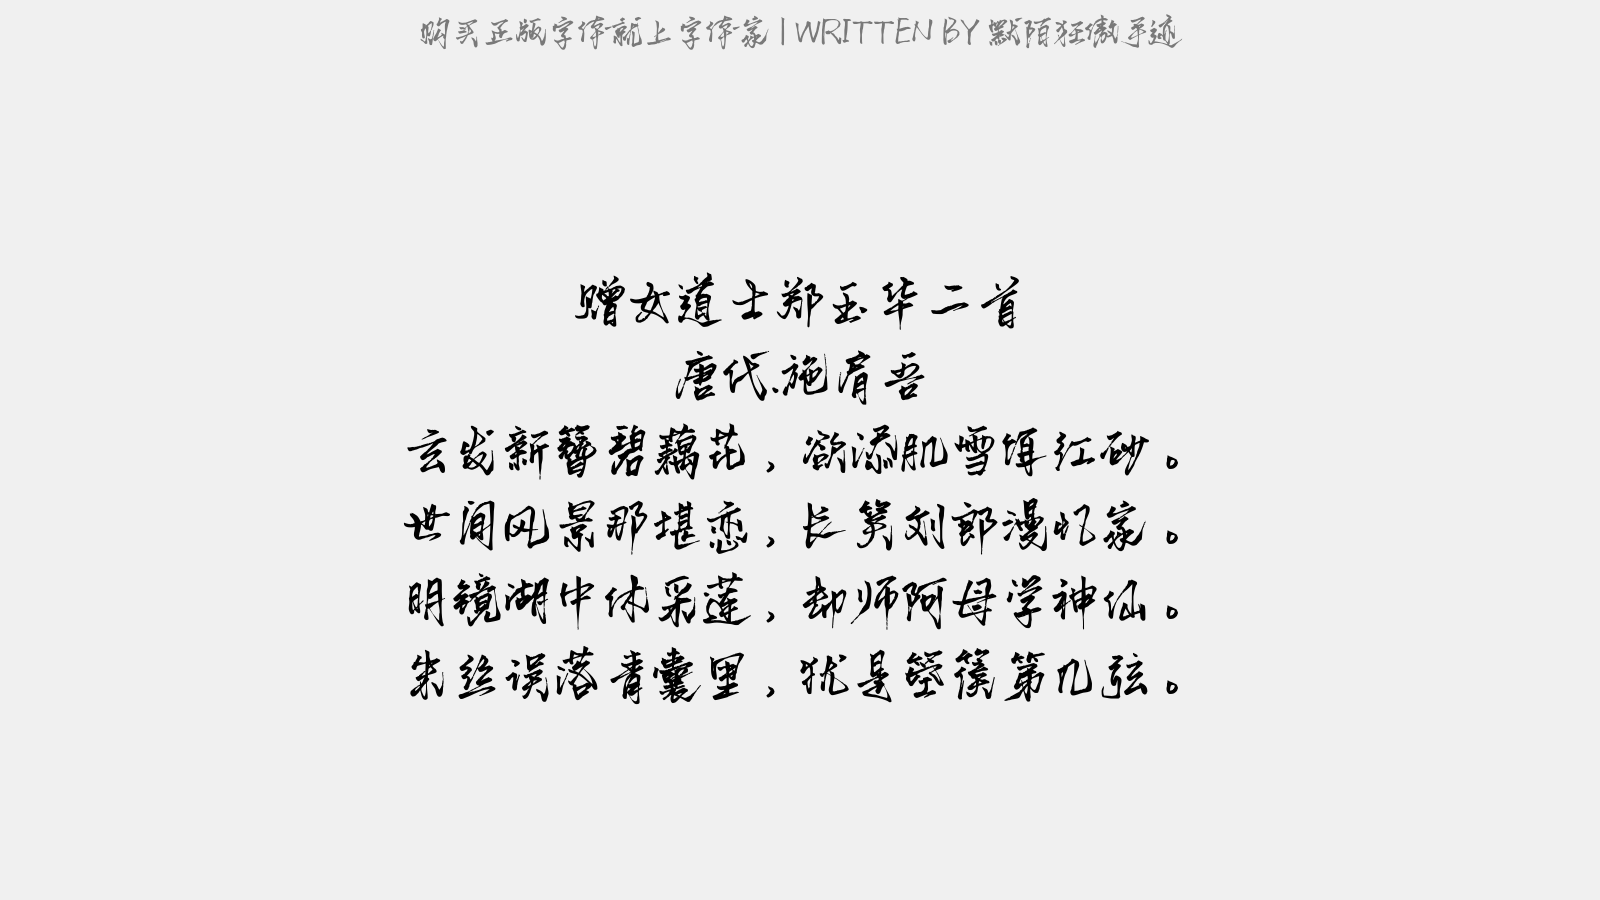 购买正版字体就上字体家 | WRITTEN BY 默陌狂傲手迹
赠女道士郑玉华二首
唐代.施肩吾
玄发新簪碧藕花，欲添肌雪饵红砂。
世间风景那堪恋，长笑刘郎漫忆家。
明镜湖中休采莲，却师阿母学神仙。
朱丝误落青囊里，犹是箜篌第几弦。